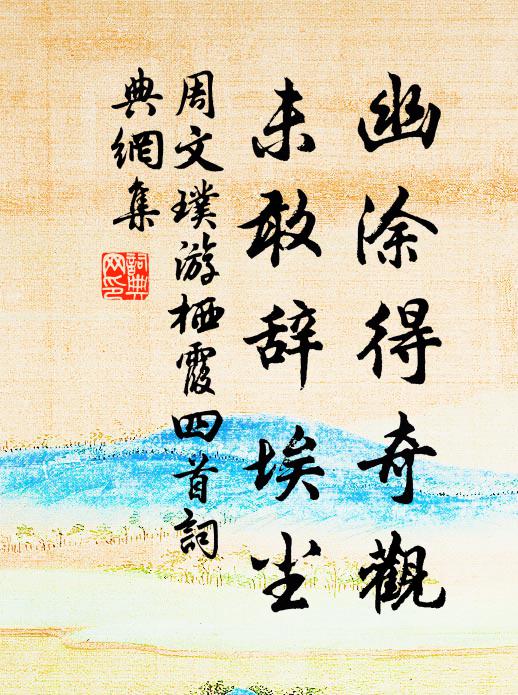 幽涂得奇觀
未敢辞埃尘
周文璞游栖霞四首詞
典網集
詞典
网印